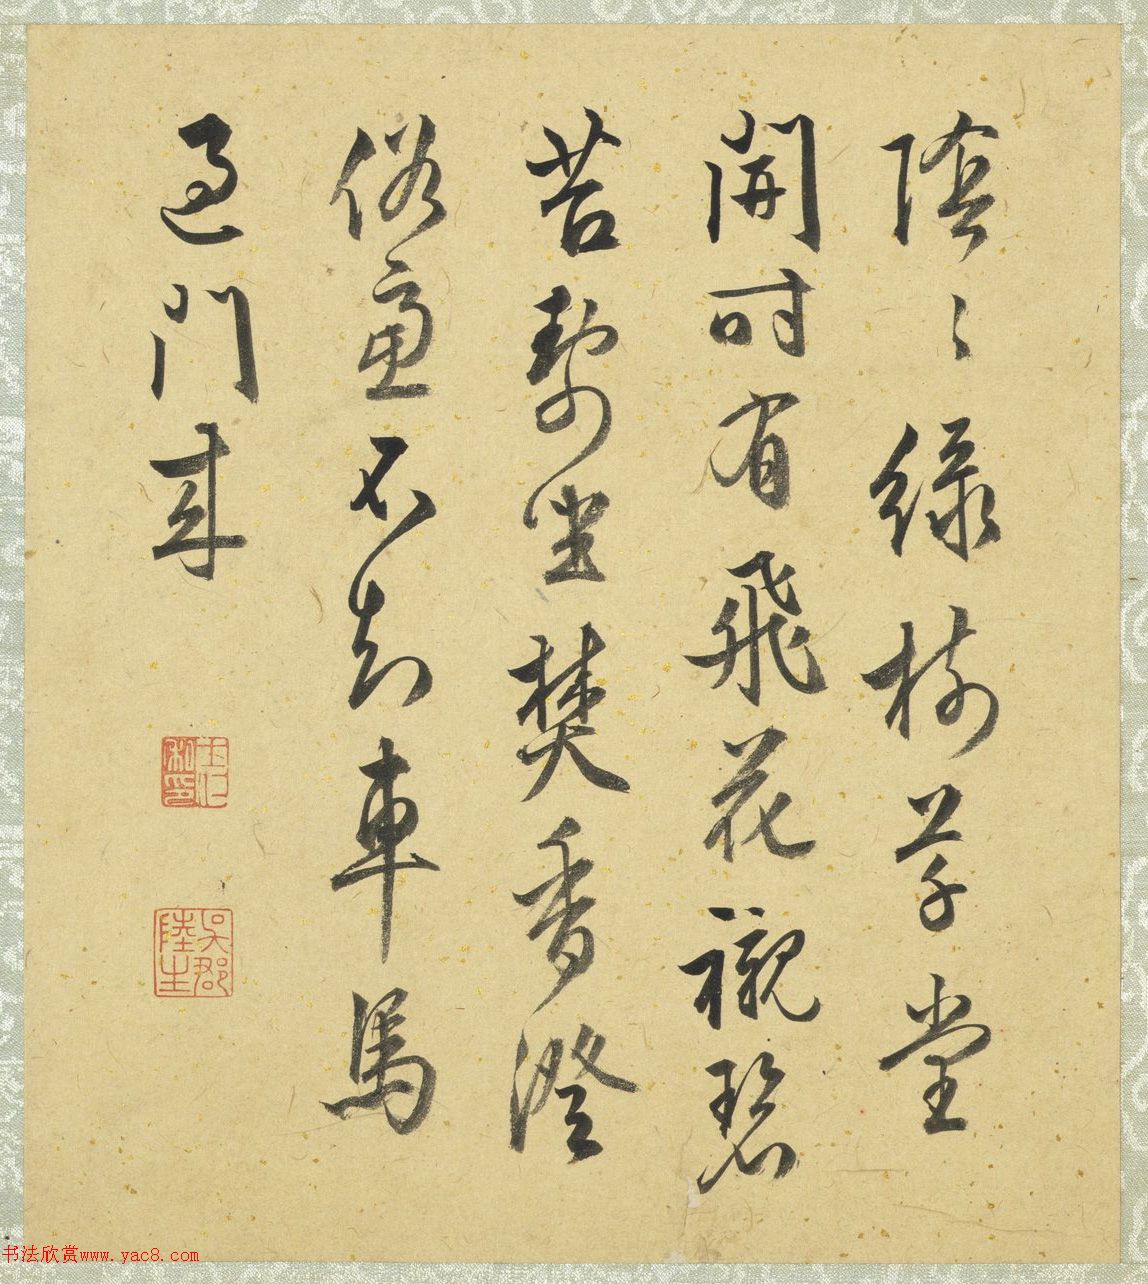 陰〻綠樹草堂
開時有飛花襯碧
苔靜坐焚香澄
俗慮不知車馬
過門來
吳郡陸生
书法欣赏www.yac8.com